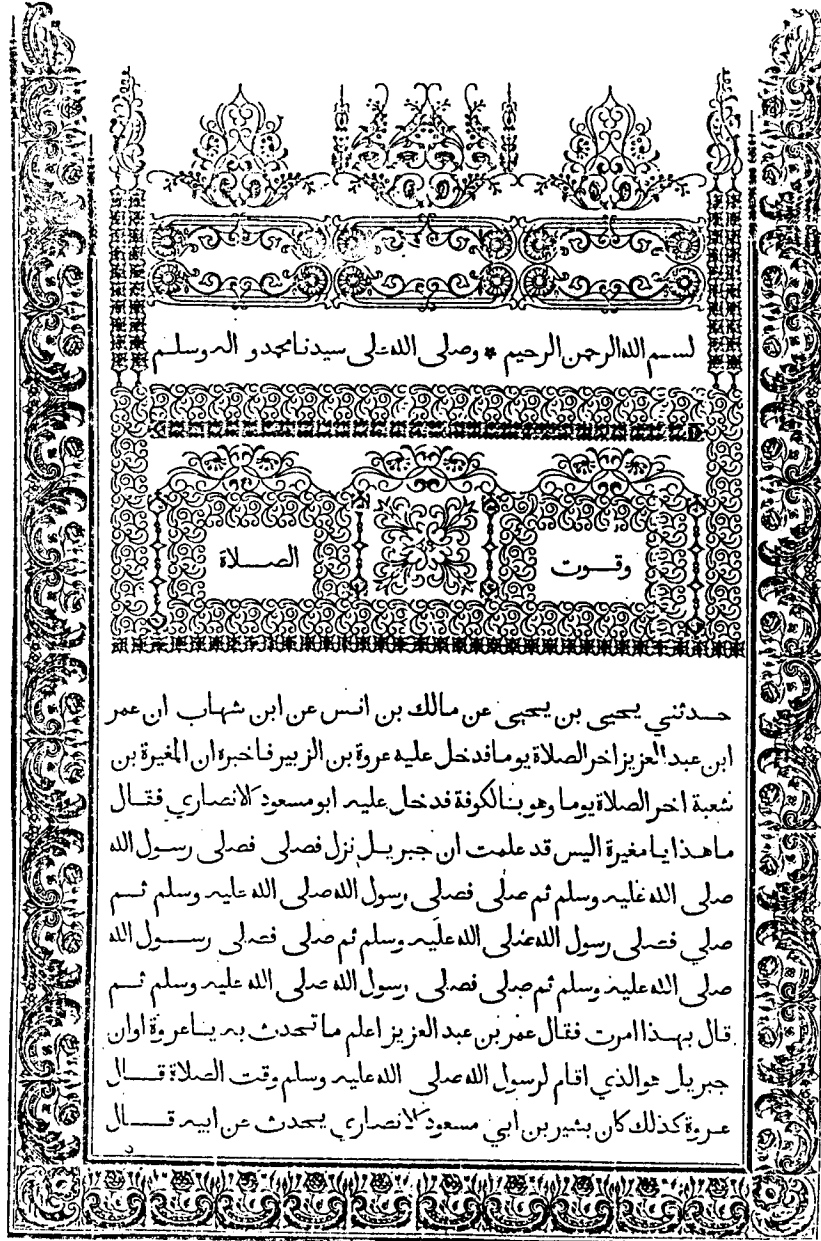 بسم الله الرحمن الرحيم * وصلى الله على سيدنا محمد و اله وسلم
وقوت الصلاة
حدثني يحيى بن يحيى عن مالك بن انس عن ابن شهاب ان عمر
ابن عبد العزيز اخر الصلاة يوما فدخل عليه عروة بن الزبير فاخبره ان المغيرة بن
شعبة اخر الصلاة يوما وهو بالكوفة فدخل عليه ابو مسعود الانصاري فقال
ما هذا يا مغيرة اليس قد علمت ان جبريل نزل فصلى فصلى رسول الله
صلى الله عليه وسلم ثم صلى فصلى رسول الله صلى الله عليه وسلم ثم
صلي فصلى رسول الله صلى الله عليه وسلم ثم صلى فصلى رسول الله
صلى الله عليه وسلم ثم صلى فصلى رسول الله صلى الله عليه وسلم ثم
قال بهذا امرت فقال عمر بن عبد العزيز اعلم ما تحدث به يا عروة اوان
جبريل هو الذي اقام لرسول الله صلى الله عليه وسلم وقت الصلاة قال
عروة كذلك كان بشير بن ابي مسعود الانصاري يحدث عن ابيه قال